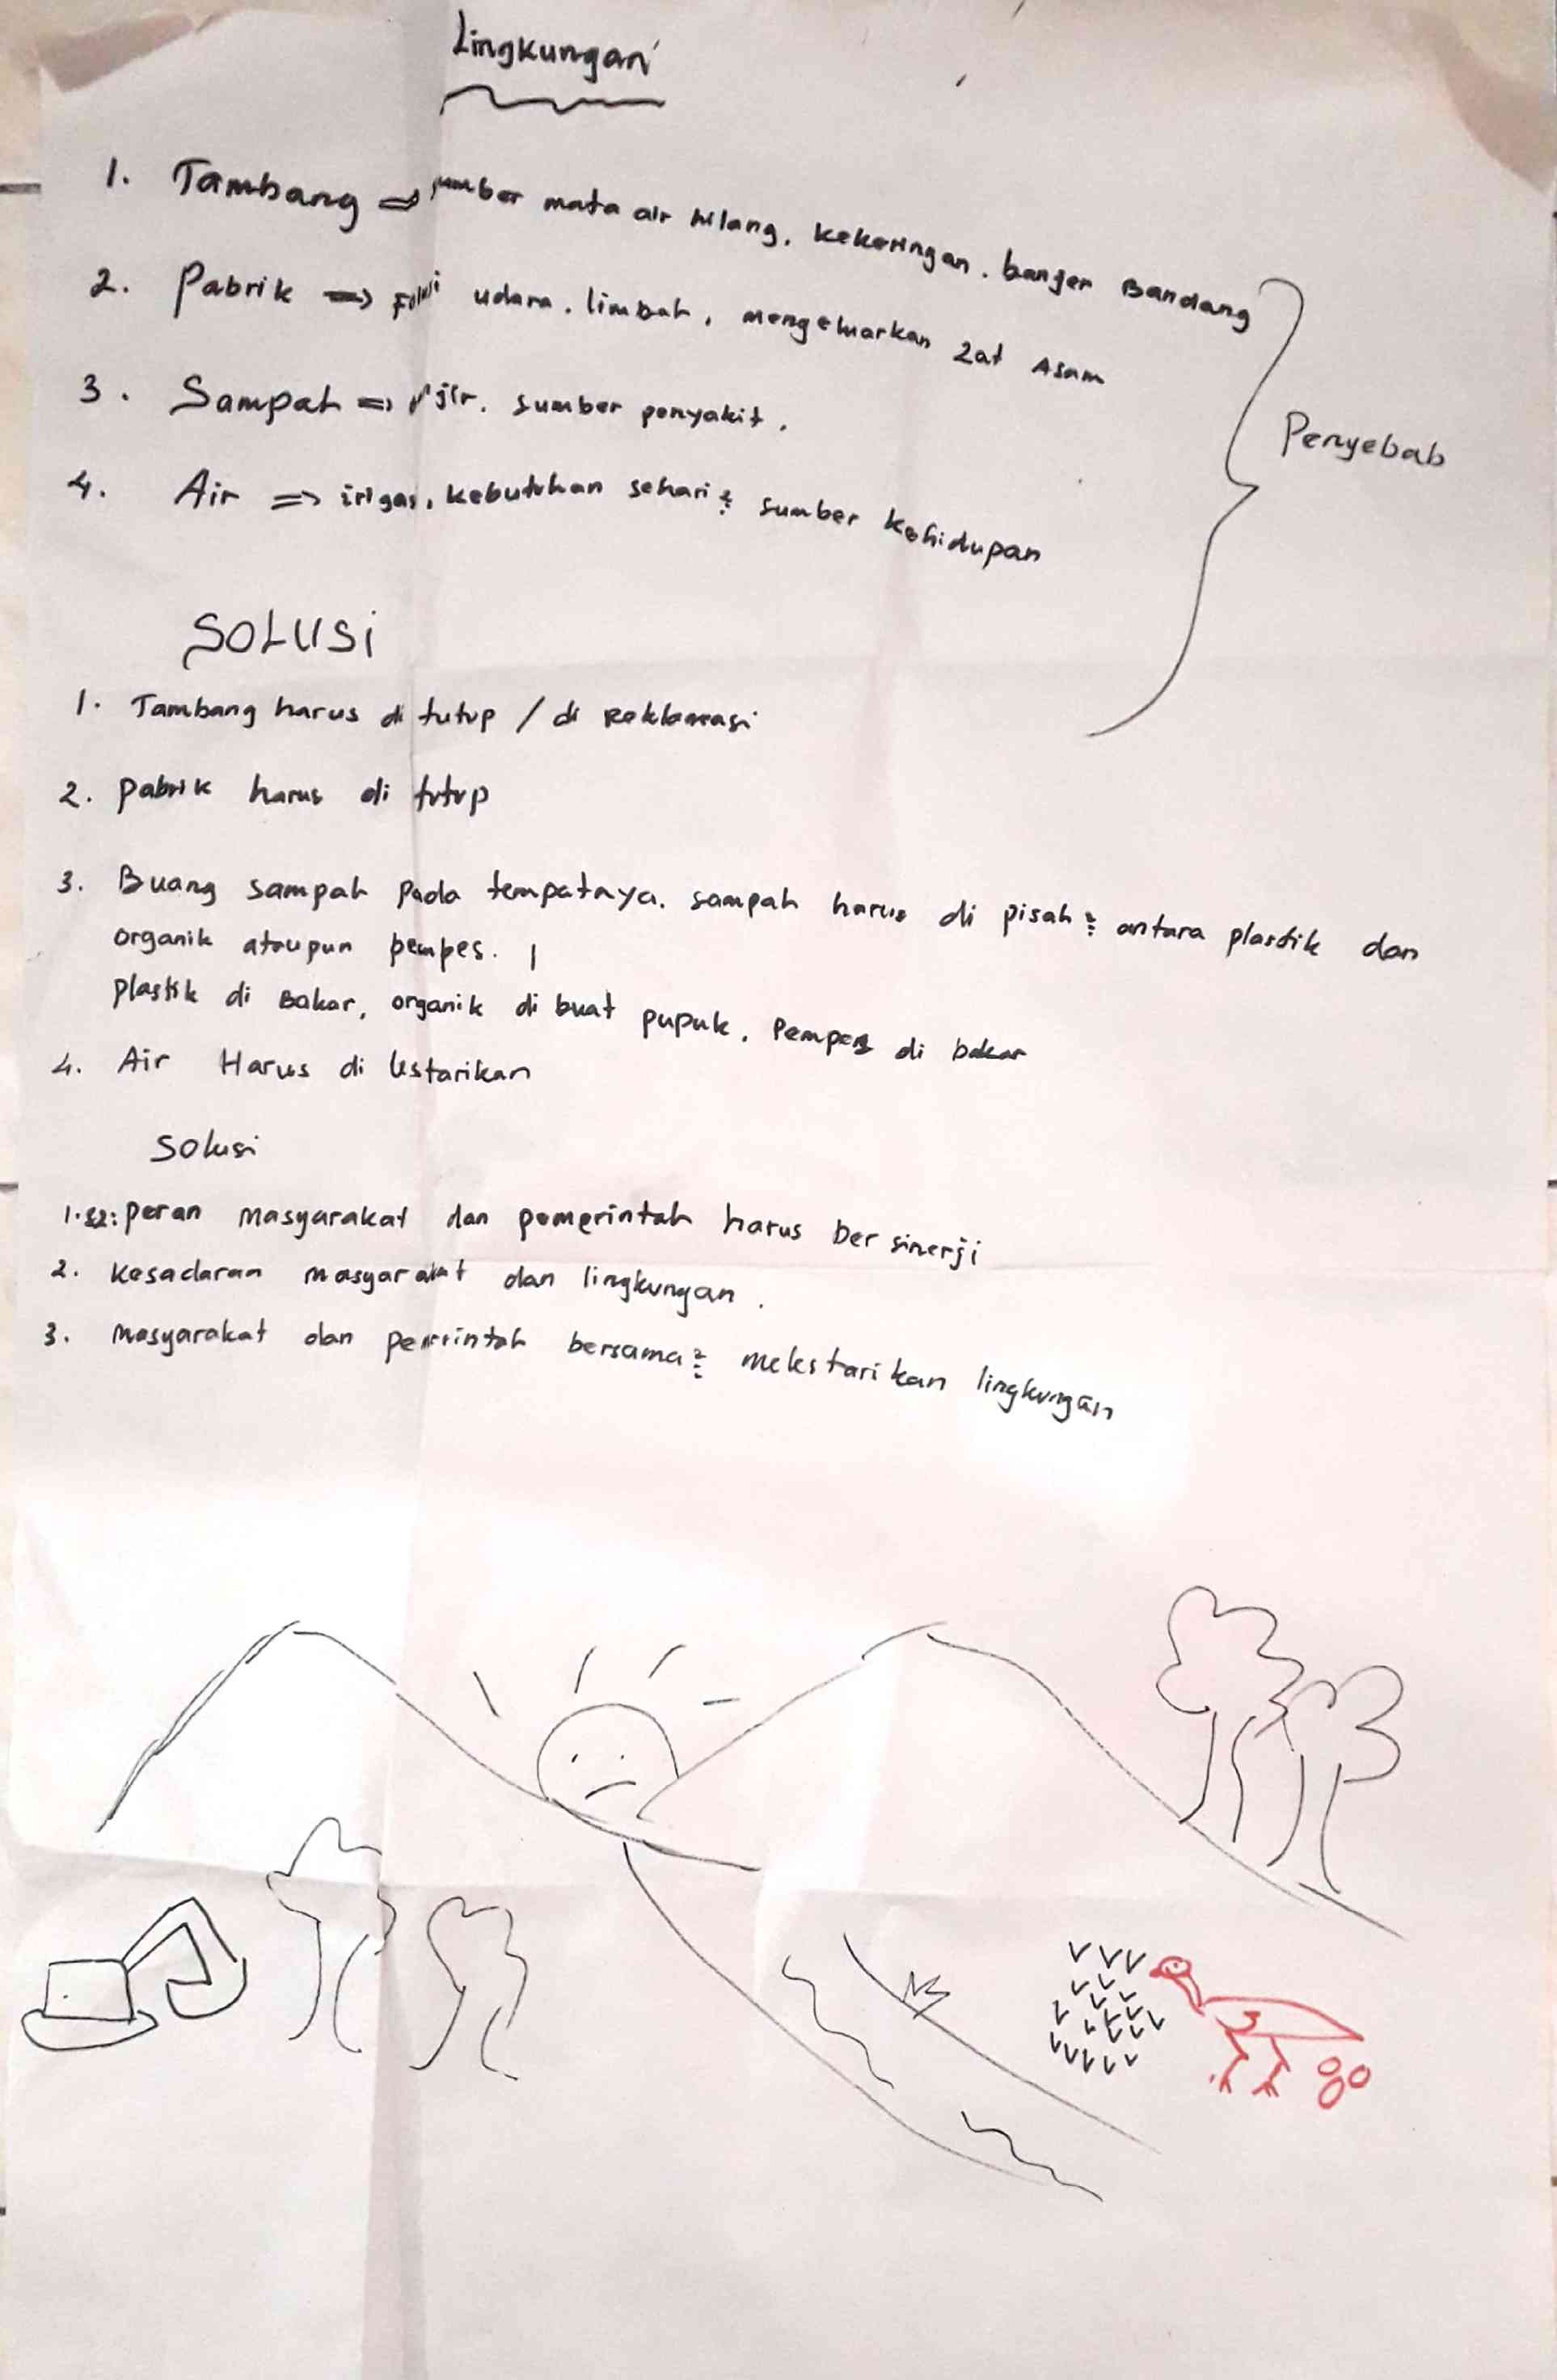 Lingkungan
1. Tambang => sumber mata air hilang, kekeringan. banjer Bandang
2. Pabrik => Polusi udara, limbah, mengeluarkan zat Asam
3. Sampah => sumber penyakit.
4. Air => irigasi, kebutuhan sehari² sumber kehidupan
Penyebab
SOLUSi
1. Tambang harus di tutup / di Reklamasi
2. pabrik harus di tutup
3. Buang sampah pada tempatnya. sampah harus di pisah² antara plastik dan
organik ataupun pempes.
plastik di Bakar, organik di buat pupuk. Pempes di bakar
4. Air Harus di lestarikan
Solusi
1. peran masyarakat dan pemerintah harus ber sinerji
2. kesadaran masyarakat dan lingkungan.
3. Masyarakat dan pemerintah bersama² melestarikan lingkungan